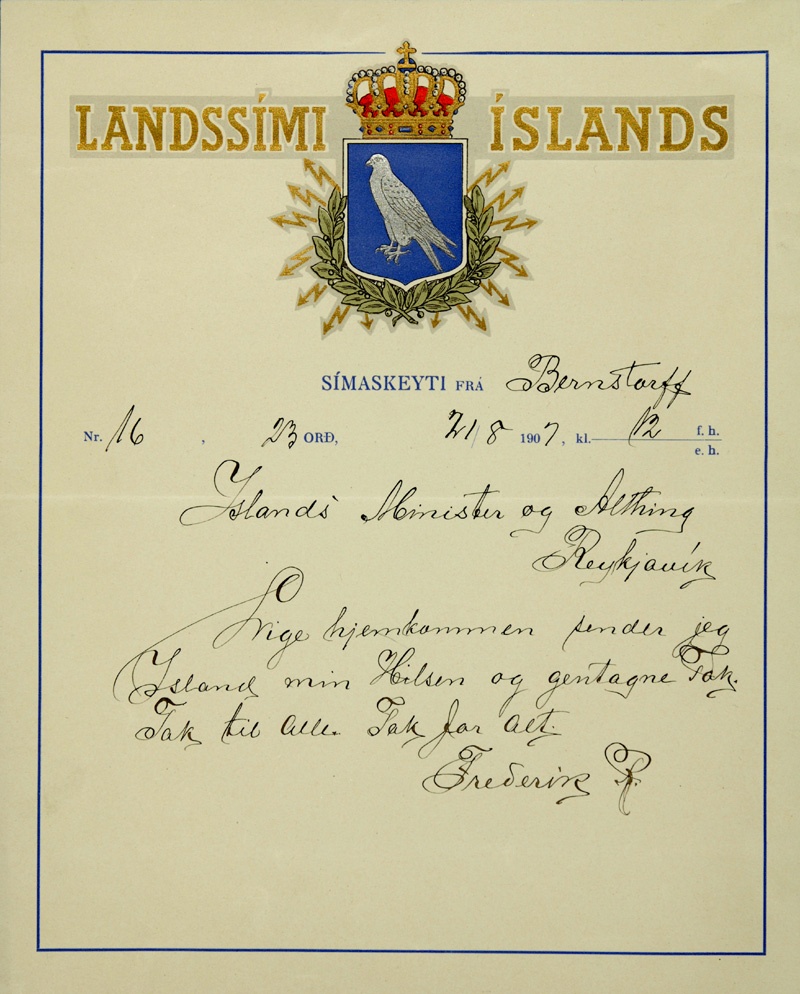 LANDSSÍMI ÍSLANDS
SÍMASKEYTI FRÁ Bernstorff
Nr. 16, 23 ORÐ, 21/8 1907, kl. 12 f. h.
e. h.
Islands Minister og Althing
Reykjavík
Lige hjemkommen sender jeg
Island min Hilsen og gentagne Tak.
Tak til Alle. Tak for Alt.
Frederik R.